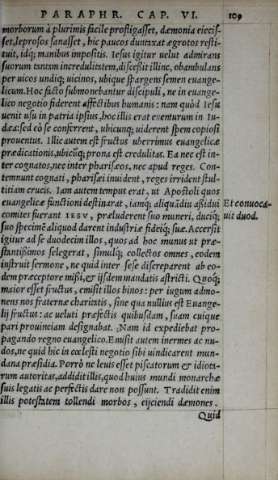 PARAPHR. CAP. VI. 109
morborum à plurimis facile profligasset, dæmonia eiecis-
set, leprosos sanasset, hic paucos duntaxat ægrotos resti-
tuit, idq; manibus impositis. Iesus igitur uelut admirans
suorum tantam incredulitatem, discessit illinc, obambulans
per uicos undiq; uicinos, ubique spargens semen euange-
licum. Hoc facto submonebantur discipuli, ne in euange-
lico negotio fiderent affectibus humanis: nam quòd Iesu
uenit usu in patria ipsius, hoc illis erat euenturum in Iu-
dæa: sed eò se conferrent, ubicunq; uiderent spem copiosi
prouentus. Illic autem est fructus uberrimus euangelicæ
prædicationis, ubicūq; prona est credulitas. Ea nec est in-
ter cognatos, nec inter pharisæos, nec apud reges. Con-
temnunt cognati, pharisæi inuident, reges irrident stul-
titiam crucis. Iam autem tempus erat, ut Apostoli quos
euangelicæ functioni destinarat, iamq; aliquādiu assidui Et conuocā-
comites fuerant IESV, præluderent suo muneri, duceiq; uit duod.
suo specimē aliquod darent industriæ fideiq; suæ. Accersit
igitur ad se duodecim illos, quos ad hoc munus ut præ-
stantissimos selegerat, simulq; collectos omnes, eodem
instruit sermone, ne quid inter sese discreparent ab eo-
dem præceptore missi, & ijsdem mandatis astricti. Quoq;
maior esset fructus, emisit illos binos: per iugum admo-
nens nos fraternæ charitatis, sine qua nullus est Euange-
lij fructus: ac ueluti præfectis quibusdam, suam cuique
pari prouinciam designabat. Nam id expediebat pro-
pagando regno euangelico. Emisit autem inermes ac nu-
dos, ne quid hic in cœlesti negotio sibi uindicarent mun-
dana præsidia. Porrò ne leuis esset piscatorum & idiota-
rum autoritas, addidit illis, quod huius mundi monarchæ
suis legatis ac perfectis dare non possunt. Tradidit enim
illis potestatem tollendi morbos, eijciendi dæmones.
Quid